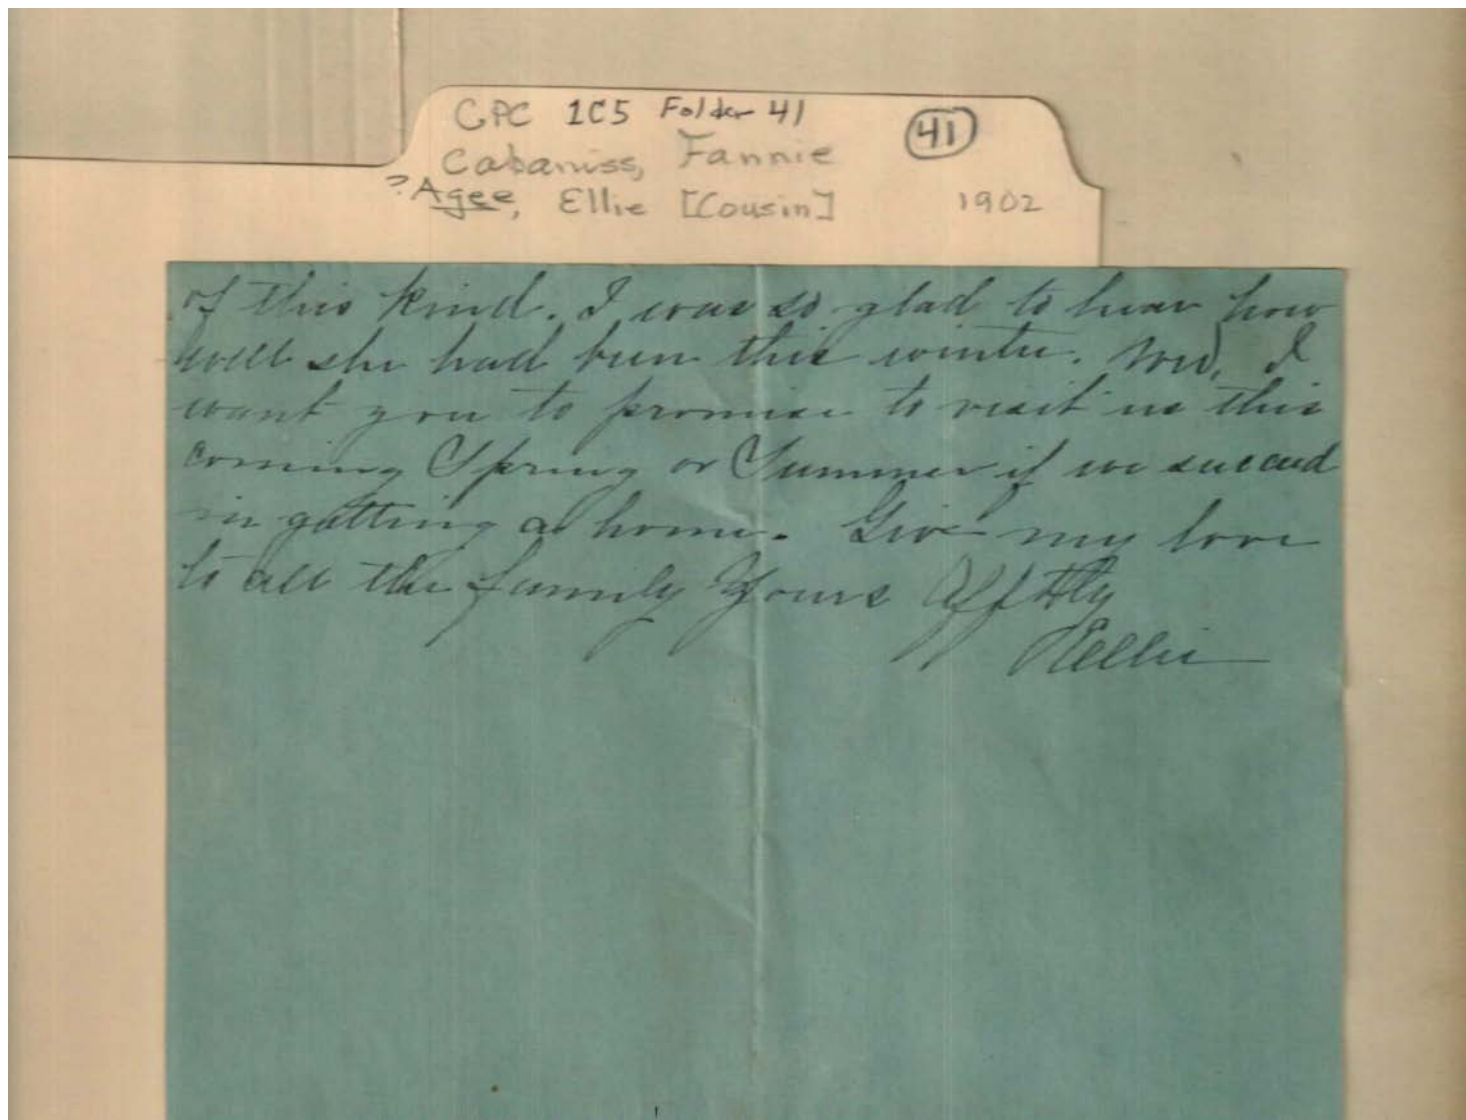 CPC 1C5 Folder 41
41
Cabaniss, Fannie
? Agee, Ellie [Cousin] 1902
of this kind. I was so glad to hear how
well she had been this winter. Now, I
want you to promise to visit us this
coming Spring or Summer if we succeed
in getting a home. Give my love
to all the family Yours Afftly
Ellie